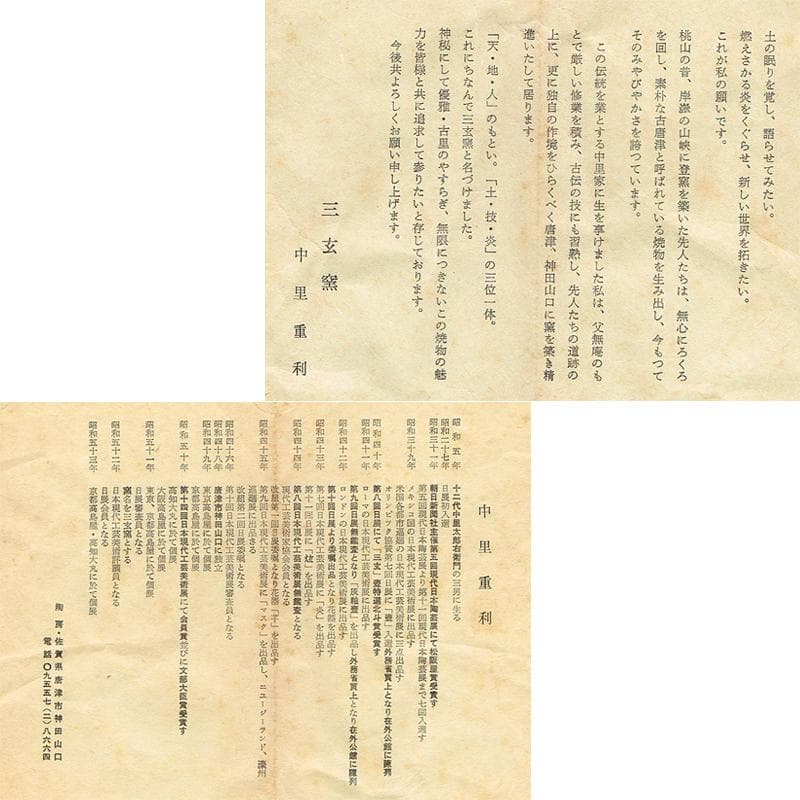 土の眠りを覚し、語らせてみたい。
燃えさかる炎をくぐらせ、新しい世界を拓きたい。
これが私の願いです。
桃山の昔、岸嶽の山峡に登窯を築いた先人たちは、無心にろくろ
を回し、素朴な古唐津と呼ばれている焼物を生み出し、今もつて
そのみやびやかさを誇つています。
この伝統を業とする中里家に生を享けました私は、父無庵のも
とで厳しい修業を積み、古伝の技にも習熟し、先人たちの道跡の
上に、更に独自の作境をひらくべく唐津、神田山口に窯を築き精
進いたして居ります。
「天・地・人」のもとい。「土・技・炎」の三位一体。
これにちなんで三玄窯と名づけました。
神秘にして優雅・古里のやすらぎ、無限につきないこの焼物の魅
力を皆様と共に追求して参りたいと存じております。
今後共よろしくお願い申し上げます。
三玄窯
中里重利
中里重利
昭和五年 十二代中里太郎右衛門の三男に生る
昭和二十七年 日展初入選
昭和三十一年 朝日新聞社主催第五回現代日本陶芸展にて松阪屋賞受賞す
第五回現代日本陶芸展より第十一回現代日本陶芸展まで七回入選す
昭和三十九年 メキシコ国の日本現代工芸美術展に出品す
米国各都市巡廻の日本現代工芸美術展に三点出品す
オリンピック協賛第七回日展に「壷」入選外務省買上となり在外公館に陳列
昭和四十年 第八回日展にて「三玄」壷特選北斗賞受賞す
昭和四十一年 ローマの日本現代工芸美術展に出品す
第九回日展無鑑査となり「灰釉壷」を出品し外務省買上となり在外公館に陳列
昭和四十二年 ロンドンの日本現代工芸美術展に出品す
第十回日展より委嘱出品となり花器を出品す
昭和四十三年 第七回日本現代工芸美術展に「炎」を出品す
第十一回日展に「炫」を出品す
昭和四十四年 第八回日本現代工芸美術展無鑑査となる
現代工芸美術家協会会員となる
改組第一回日展委嘱となり花器「干」を出品す
昭和四十五年 第九回日本現代工芸美術展に「マスク」を出品し、ニュージーランド、濠州
巡廻展に出品さる
改組第二回日展委嘱となる
昭和四十六年 第十回日本現代工芸美術展審査員となる
昭和四十八年 唐津市神田山口に独立
昭和四十九年 東京高島屋に於て個展
京都高島屋に於て個展
昭和五十年 第十四回日本現代工芸美術展にて会員賞並びに文部大臣賞受賞す
高知大丸に於て個展
大阪高島屋に於て個展
昭和五十一年 東京、京都高島屋に於て個展
日展審査員となる
窯名を三玄窯とする
昭和五十二年 日本現代工芸美術評議員となる
日展会員となる
昭和五十三年 京都高島屋・高知大丸に於て個展
陶房・佐賀県唐津市神田山口
電話〇九五五七(二)八六六四